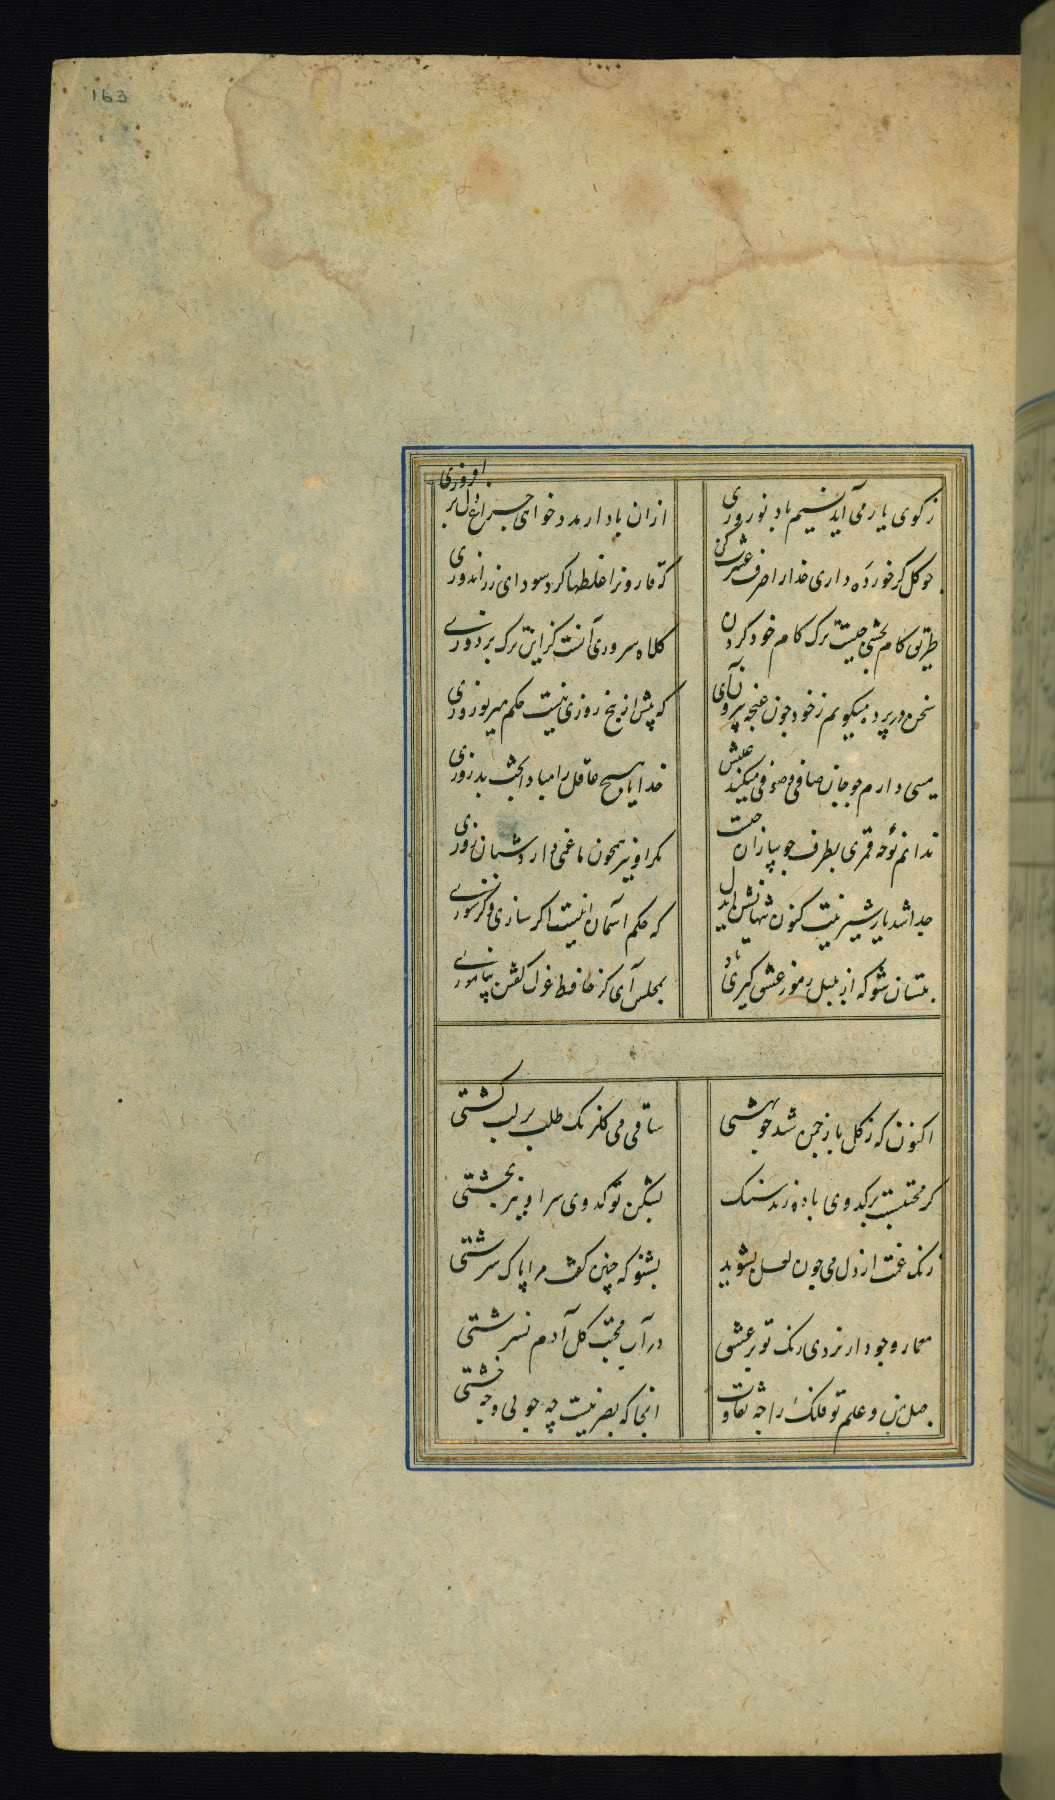 163
ز کوی یار می آید نسیم باد نوروزی
ازان باد ار مدد خواهی چراغ دل بر افروزی
چو کل کر خورده داری خدا را صرف عشرت کن
که قارونرا غلطها کرد سودای زر اندوزی
طریق کام بخشی چیست ترک کام خود کردن
کلاه سروری آنست کز این ترک بردوزی
سخن در پرده میکویم ز خود چون غنچه بیرون آی
که پیش از پنج روزی نیست حکم میر نوروزی
میی دارم چو جان صافی و صوفی میکند عیبش
خدایا هیچ عاقل را مبادا بخت بد روزی
ندانم نوحه قمری بطرف جویباران چیست
مکر او نیز همچون ما غمی دارد شبان روزی
جدا شد یار شیرینت کنون تنها نشین ای دل
که حکم آسمان اینست اکر سازی و کر سوزی
ببستان شو که از بلبل رموز عشق کیری یاد
بمجلس آی کز حافظ غزل کفتن بیاموزی
اکنون که ز کل باز چمن شد چو بهشتی
ساقی می کلرنک طلب بر لب کشتی
کر محتسبت بر کدوی باده زند سنک
بشکن تو کدوی سر او نیز بخشتی
زنک غمت از دل می چون لعل بشوید
بشنو که چنین کفت مرا پاک سرشتی
معمار وجود ار نزدی رنک تو بر عشق
در آب محبت کل آدم نسرشتی
جهل من و علم تو فلک را چه تفاوت
انجا که بصر نیست چه خوبی و چه زشتی